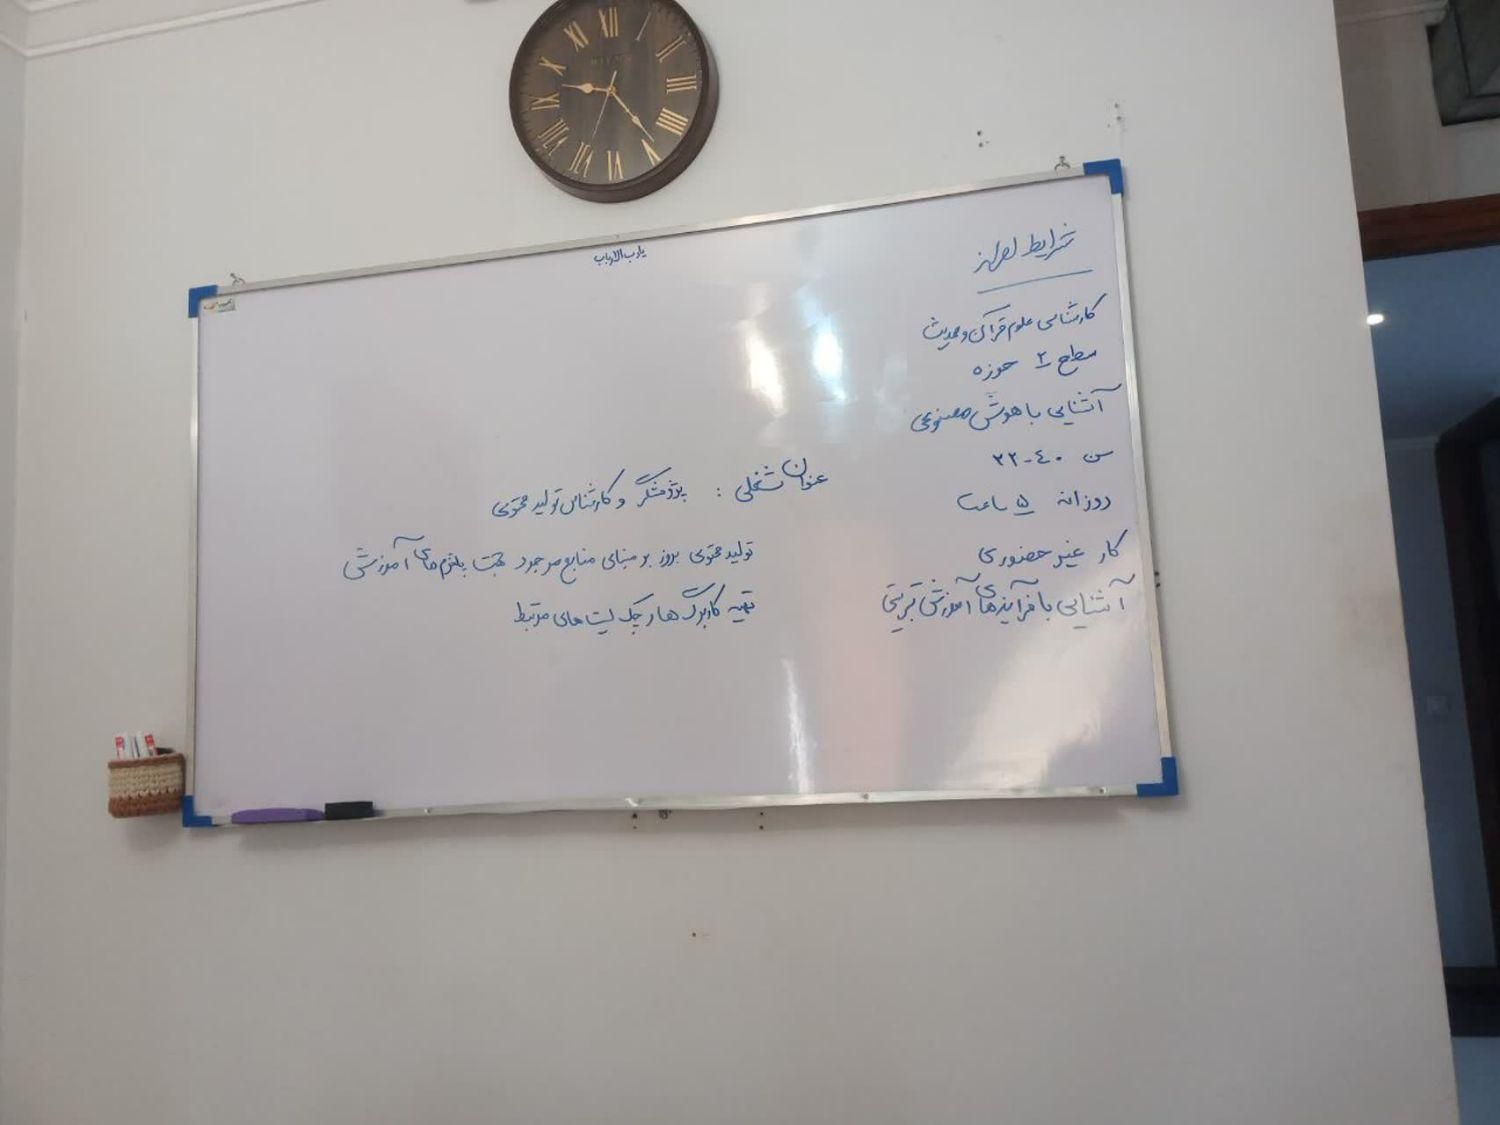 یا رب الارباب
شرایط احراز
کارشناسی علوم قرآن و حدیث
سطح ۲ حوزه
آشنایی با هوش مصنوعی
سن ۴۰-۲۲
روزانه ۵ ساعت
کار غیر حضوری
آشنایی با فرآیندهای آموزشی تربیتی
عنوان شغلی : پژوهشگر و کارشناس تولید محتوی
تولید محتوی بروز بر مبنای منابع موجود جهت پلتفرم های آموزشی
تهیه کاربرگ ها و چک لیست های مرتبط
XII I II III IIII V VI VII VIII IX X XI